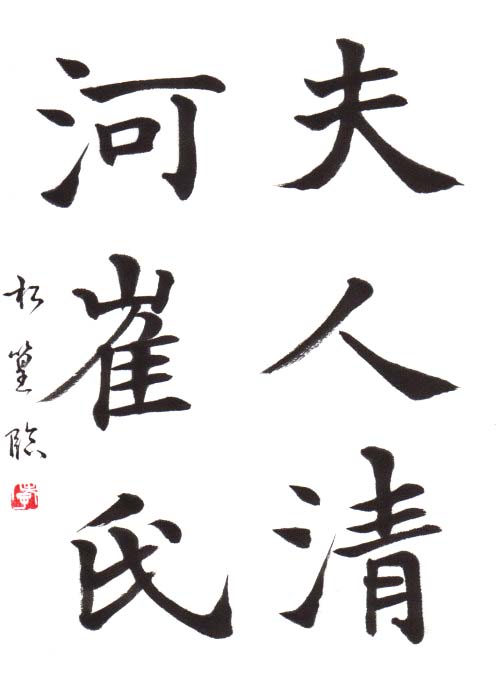 夫人清
河崔氏
松篁臨